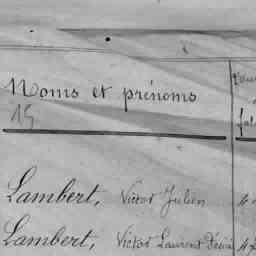 Noms et prénoms
15
Lambert, Victor Julien
Lambert, Victor Laurent Désiré